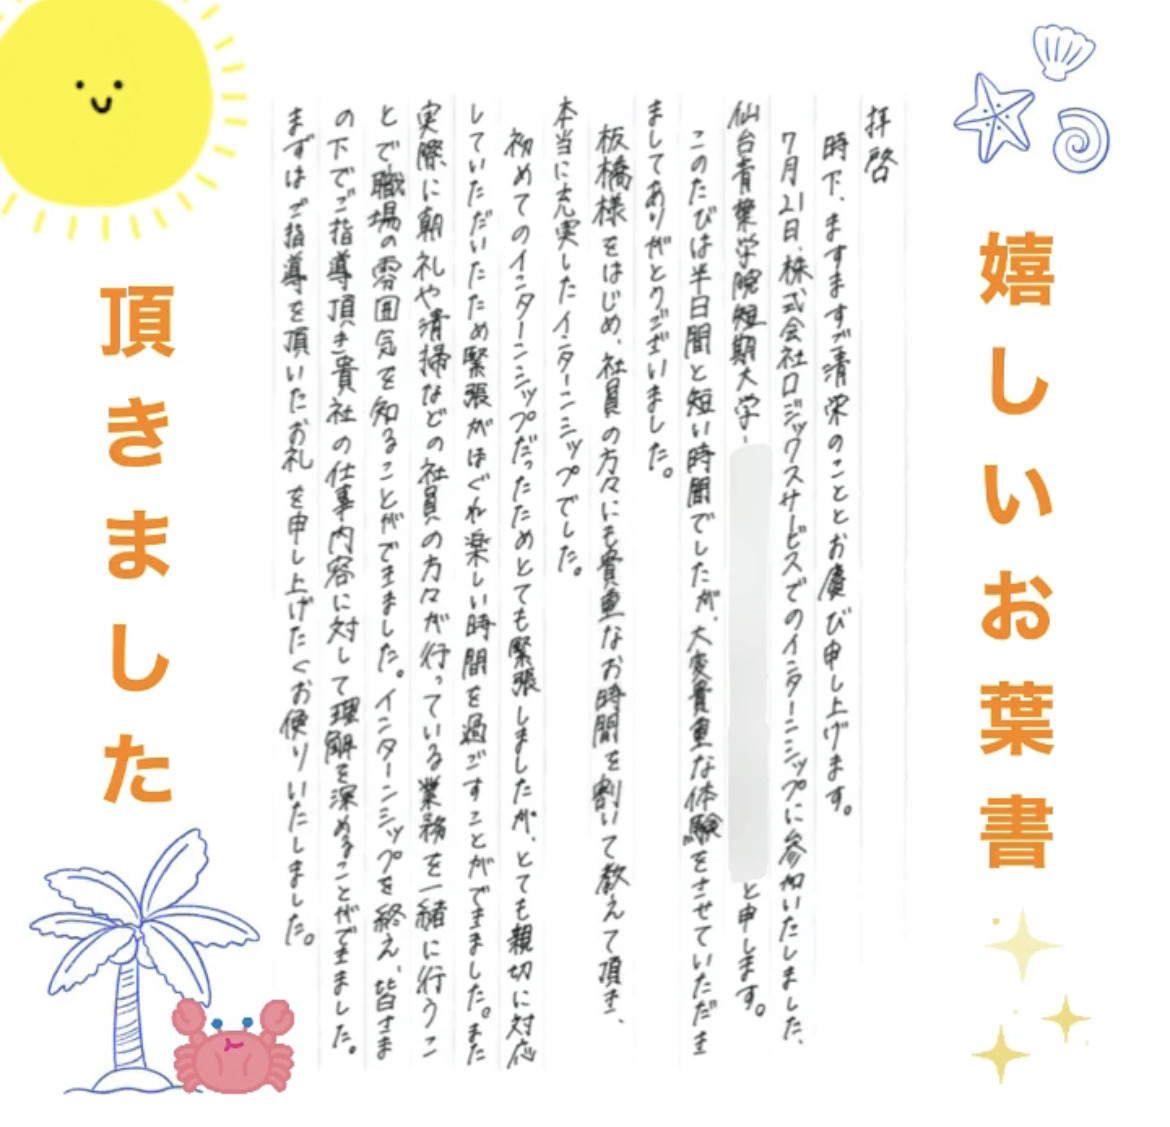 嬉しいお葉書
拝啓
時下、ますますご清栄のこととお慶び申し上げます。
7月21日、株式会社ロジックスサービスでのインターンシップに参加いたしました、
仙台青葉学院短期大学
と申します。
このたびは半日間と短い時間でしたが、大変貴重な体験をさせていただき
ましてありがとうございました。
板橋様をはじめ、社員の方々にも貴重なお時間を割いて教えて頂き、
本当に充実したインターンシップでした。
初めてのインターンシップだったためとても緊張しましたが、とても親切に対応
していただいたため緊張がほぐれ楽しい時間を過ごすことができました。また
実際に朝礼や清掃などの社員の方々が行っている業務を一緒に行うこ
とで職場の雰囲気を知ることができました。インターンシップを終え、皆さま
の下でご指導頂き貴社の仕事内容に対して理解を深めることができました。
まずはご指導を頂いたお礼を申し上げたくお便りいたしました。
頂きました